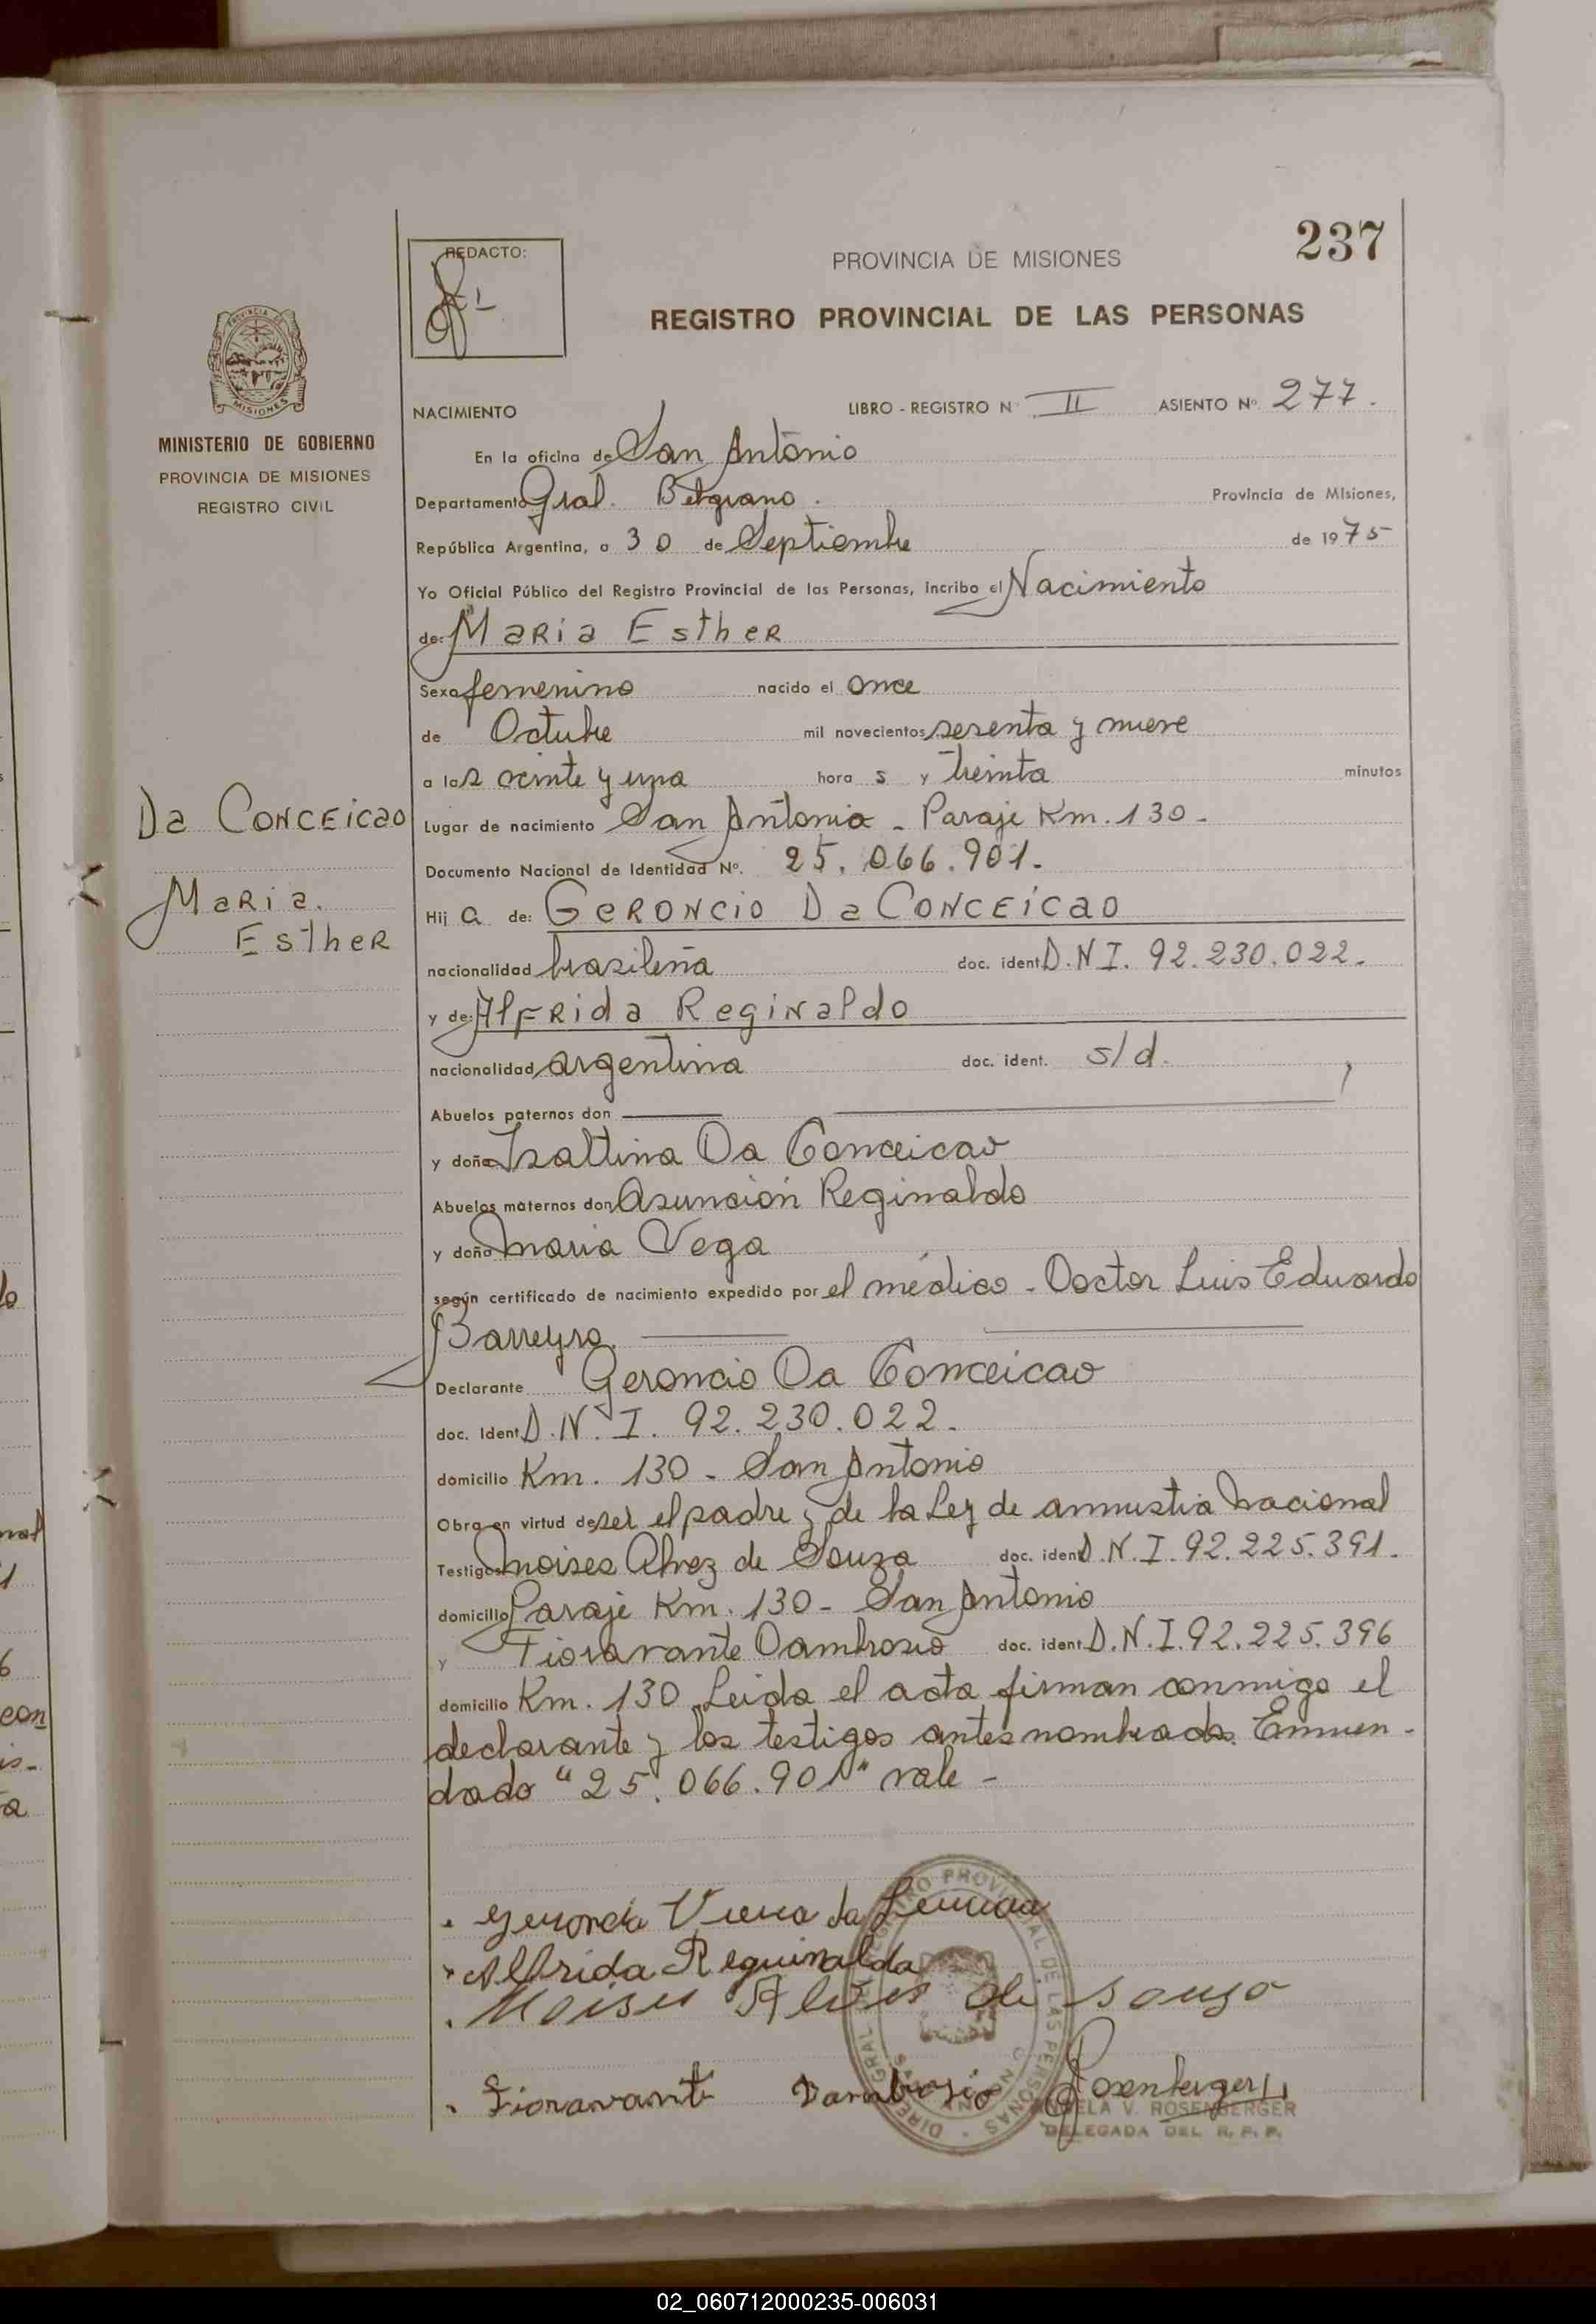 237
REDACTO:
PROVINCIA DE MISIONES
REGISTRO PROVINCIAL DE LAS PERSONAS
PROVINCIA DE
MISIONES
MINISTERIO DE GOBIERNO
PROVINCIA DE MISIONES
REGISTRO CIVIL
NACIMIENTO LIBRO - REGISTRO Nº II ASIENTO Nº 277.
En la oficina de San Antonio
Departamento Gral. Belgrano. Provincia de Misiones,
República Argentina, a 30 de Septiembre de 1975
Yo Oficial Público del Registro Provincial de las Personas, incribo el Nacimiento
de: Maria Esther
Sexo femenino nacido el once
de Octubre mil novecientos sesenta y nueve
a las veinte y una hora s y treinta minutos
Da Conceicao
Maria.
Esther
Lugar de nacimiento San Antonio - Paraje Km. 130-
Documento Nacional de Identidad Nº. 25.066.901.
Hij a de: Geroncio Da Conceicao
nacionalidad brasileña doc. ident. D.N I. 92.230.022.
y de: Alfrida Reginaldo
nacionalidad argentina doc. ident. s/d.
Abuelos paternos don
y doña Isaltina Da Conceicao
Abuelos maternos don Asunción Reginaldo
y doña Maria Vega
según certificado de nacimiento expedido por el médico - Doctor Luis Eduardo
Barreyro.
Declarante Geroncio Da Conceicao
doc. Ident. D.N.I. 92.230.022.
domicilio Km. 130 - San Antonio
Obra en virtud de ser el padre y de la Ley de amnistia Nacional
Testigos Moises Alvez de Souza doc. ident. D.N.I. 92.225.391.
domicilio Paraje Km. 130 - San Antonio
y Fioravante Dambrosio doc. ident. D.N.I. 92.225.396
domicilio Km. 130 Leida el acta firman conmigo el
declarante y los testigos antes nombrados. Enmen-
dado "25.066.901" vale -
Alfrida Reguinalda
Moises Alves de souza
Fioravante Dambrosio
Rosenberger
V. ROSENBERGER
DELEGADA DEL R. P. P.
02_060712000235-006031